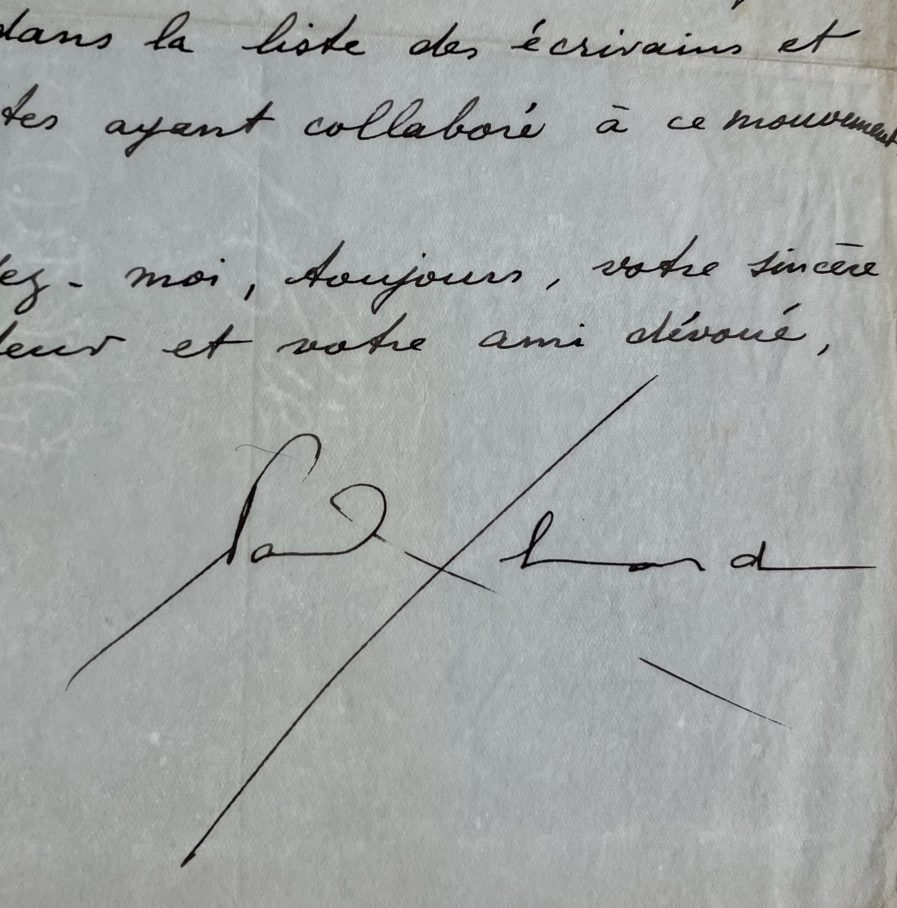 dans la liste des écrivains et
tes ayant collaboré à ce mouvement
ez-moi, toujours, votre sincère
teur et votre ami dévoué,